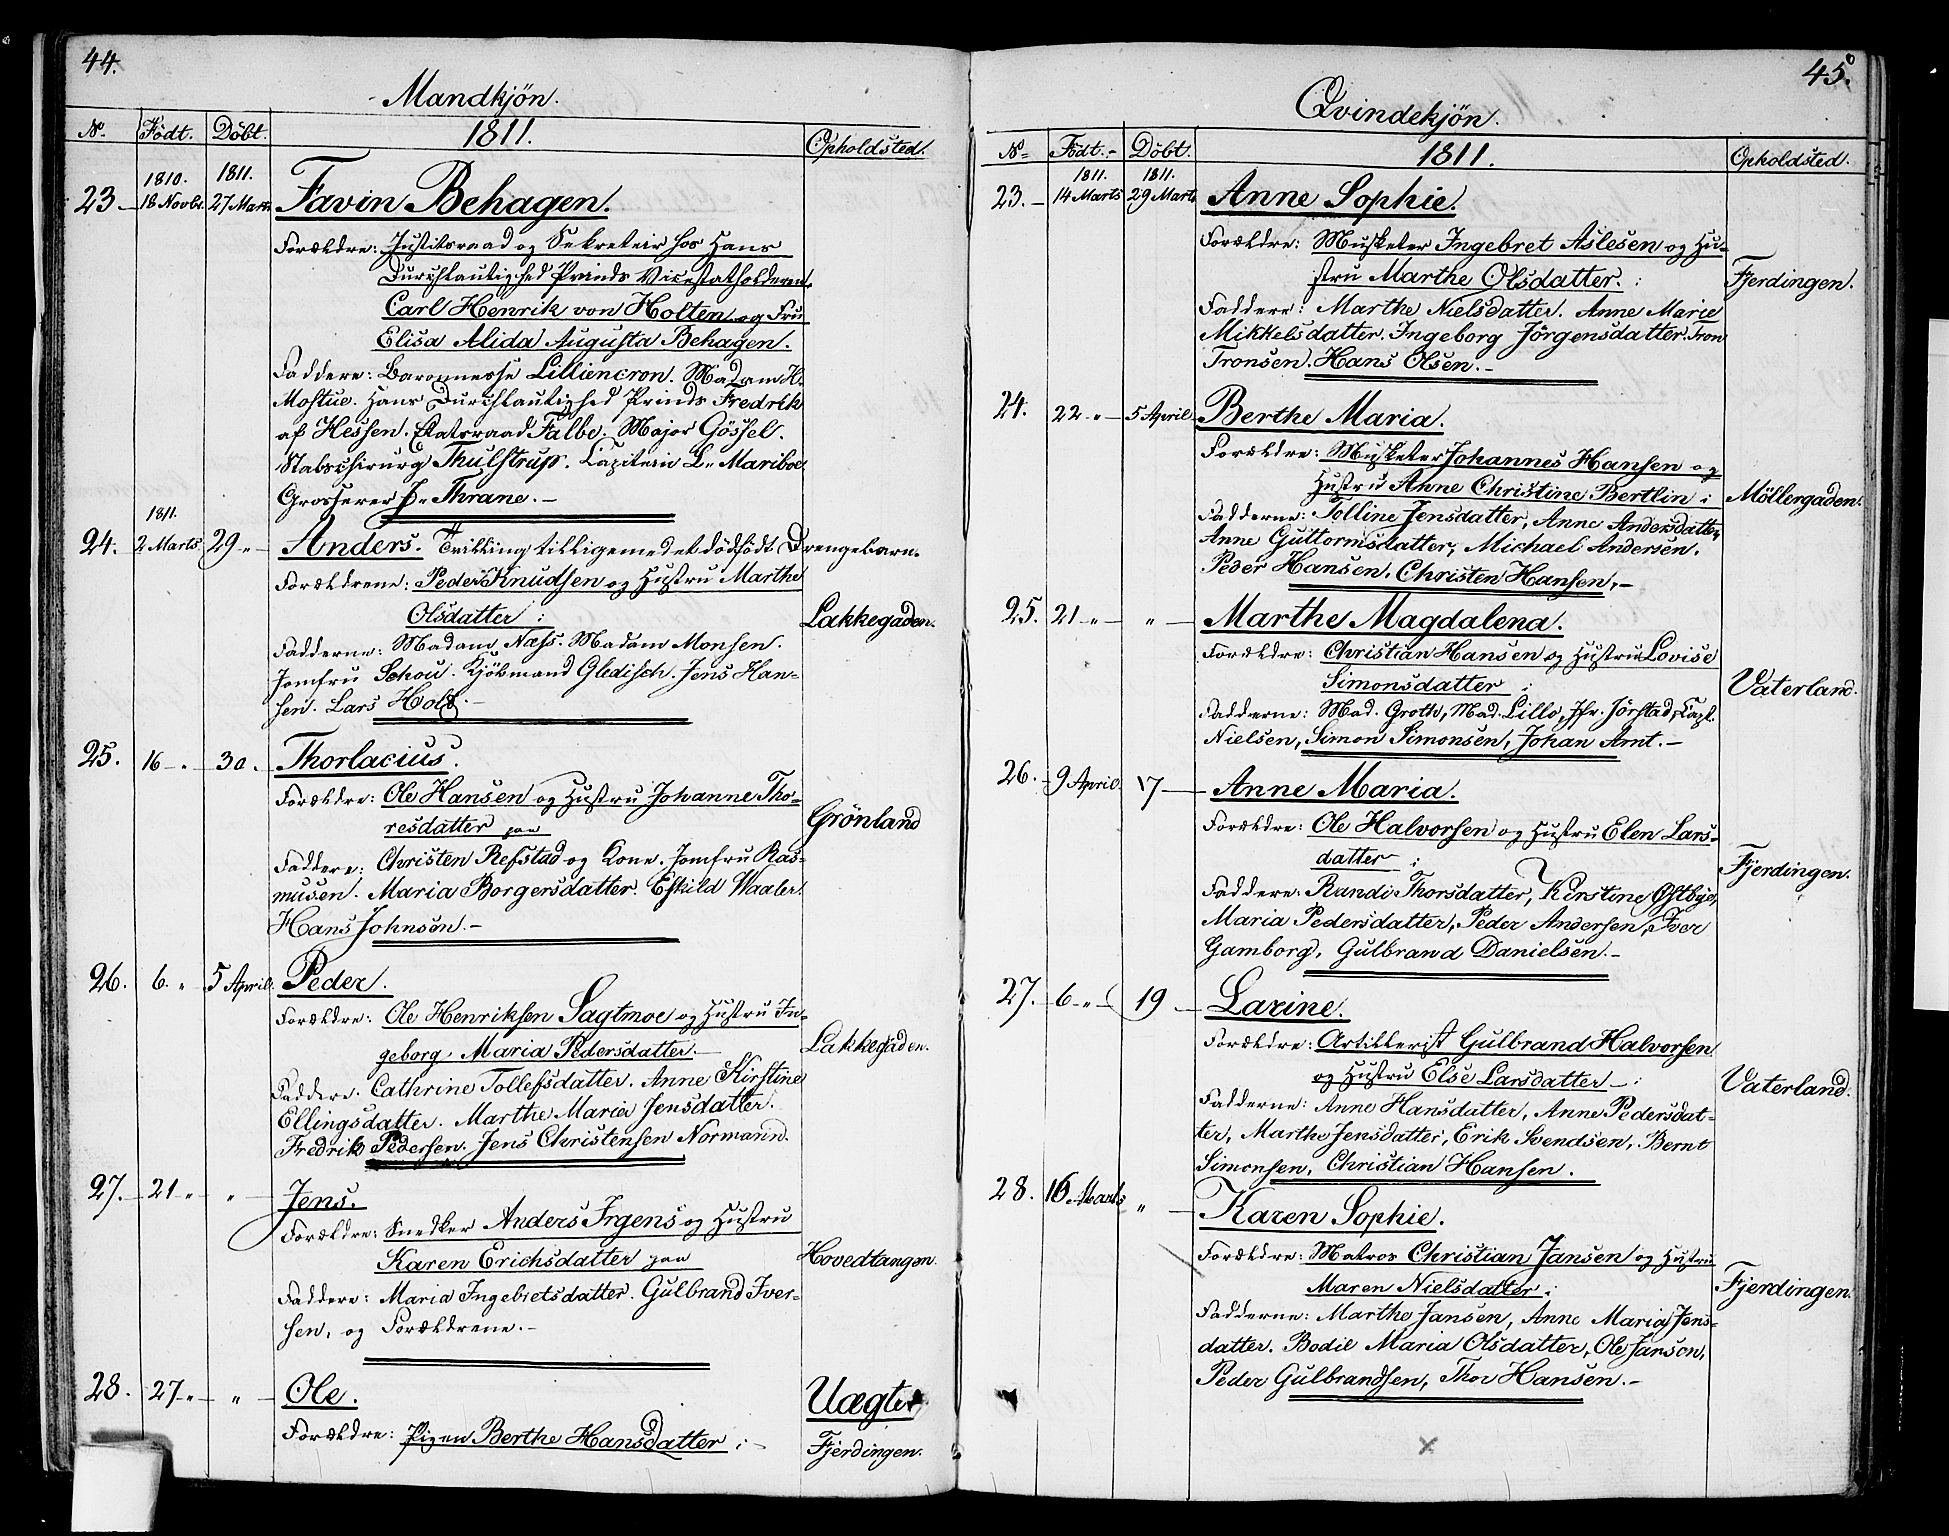 44.
Mandkjön.
No. Födt. Döbt. 1811. Opholdsted.
1810. 1811.
23 18 Novbr. 27 Marts Favin Behagen.
Forældre: Justitsraad og Sekretair hos Hans
Durchlautighed Prinds Vicestatholderen
Carl Henrik von Holten og Fru
Elisa Alida Augusta Behagen.
Faddere: Baronnesse Lilliencron. Madam H.
Mostue. Hans Durchlautighed Prinds Fredrik
af Hessen. Etatsraad Falbe. Major Gössel.
Stabschirurg Thulstrup. Capitain L. Mariboe
Grosserer J. Thrane.
1811.
24. 2 Marts 29 „ Anders. Tvilling tilligemed et dödfödt Drengebarn.
Forældrene: Peder Knudsen og Hustru Marthe
Olsdatter: Lakkegaden.
Fadderne: Madam Næss. Madam Monsen.
Jomfru Schou. Kjöbmand Gledisch. Jens Han-
sen. Lars Holt.
25. 16 „ 30. Thorlacius.
Forældre: Ole Hansen og Hustru Johanne Tho-
resdatter paa Grönland
Faddere: Christen Refstad og Kone. Jomfru Ras-
musen. Maria Borgersdatter. Eskild Waaler.
Hans Johnsen.
26. 6. „ 5 April. Peder.
Forældre: Ole Henriksen Sagtmoe og Hustru In-
geborg Maria Pedersdatter. Lakkegaden.
Faddere. Cathrine Tollefsdatter. Anne Kirstine
Ellingsdatter. Marthe Maria Jensdatter.
Fredrik Pedersen. Jens Christensen Normann.
27. 21 „ „ Jens.
Forældre: Snedker Anders Irgens og Hustru
Karen Erichsdatter paa Hovedtangen.
Faddere: Maria Ingebretsdatter. Gulbrand Iver-
sen, og Forældrene.
28. 27 „ „ Ole. Uægte
Forældre: Pigen Berthe Hansdatter: Fjerdingen.
45.
Qvindekjön.
No Födt. Döbt. 1811. Opholdsted.
1811. 1811.
23. 14 Marts 29 Marts Anne Sophie.
Forældre: Musketer Ingebret Aslesen og Hu-
stru Marthe Olsdatter: Fjerdingen.
Faddere: Marthe Nielsdatter. Anne Marie
Mikkelsdatter. Ingeborg Jörgensdatter. Tron
Tronsen. Hans Olsen.
24. 22 „ 5 April. Berthe Maria.
Forældre: Musketer Johannes Hansen og
Hustru Anne Christine Bertlin: Möllergaden.
Fadderne: Tolline Jensdatter, Anne Andersdatter,
Anne Guttormsdatter, Michael Andersen.
Peder Hansen, Christen Hansen,
25. 21 „ „ Marthe Magdalena.
Forældre: Christian Hansen og Hustru Lovise
Simonsdatter: Vaterland.
Fadderne: Mad. Groth, Mad. Lillo, Jfr. Jörstad, Capt.
Nielsen, Simon Simonsen, Johan Arnt.
26. 9 April. 17 Anne Maria.
Forældre: Ole Halvorsen og Hustru Elen Lars-
datter: Fjerdingen.
Faddere: Randi Thorsdatter, Kirstine Östbye,
Maria Pedersdatter, Peder Andersen, Iver
Gamborg, Gulbrand Danielsen.
27. 6 „ 19 Larine.
Forældre: Artillerist Gulbrand Halvorsen
og Hustru Else Larsdatter: Vaterland.
Fadderne: Anne Hansdatter, Anne Pedersdat-
ter, Marthe Jensdatter, Erik Svendsen, Bernt
Simonsen, Christian Hansen.
28. 16 Marts „ Karen Sophie.
Forældre: Matros Christian Jansen og Hustru
Maren Nielsdatter: Fjerdingen.
Fadderne: Marthe Jansen, Anne Maria Jens-
datter. Bodil Maria Olsdatter, Ole Janson,
Peder Gulbrandsen, Thor Hansen.